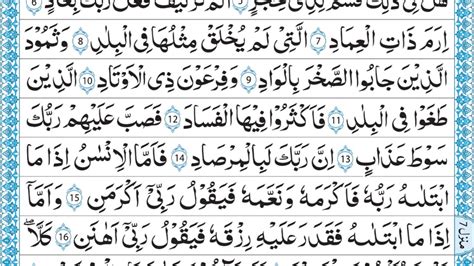 هَلْ فِیْ ذٰلِكَ قَسَمٌ لِّذِیْ حِجْرٍ ۝5 اَلَمْ تَرَ كَیْفَ فَعَلَ رَبُّكَ بِعَادٍ ۝6
اِرَمَ ذَاتِ الْعِمَادِ ۝7 الَّتِیْ لَمْ یُخْلَقْ مِثْلُهَا فِی الْبِلَادِ ۝8 وَثَمُوْدَ
الَّذِیْنَ جَابُوا الصَّخْرَ بِالْوَادِ ۝9 وَفِرْعَوْنَ ذِی الْاَوْتَادِ ۝10 الَّذِیْنَ
طَغَوْا فِی الْبِلَادِ ۝11 فَاَكْثَرُوْا فِیْهَا الْفَسَادَ ۝12 فَصَبَّ عَلَیْهِمْ رَبُّكَ
سَوْطَ عَذَابٍ ۝13 اِنَّ رَبَّكَ لَبِالْمِرْصَادِ ۝14 فَاَمَّا الْاِنْسَانُ اِذَا مَا
ابْتَلٰىهُ رَبُّهٗ فَاَكْرَمَهٗ وَنَعَّمَهٗ فَیَقُوْلُ رَبِّیْۤ اَكْرَمَنِ ۝15 وَاَمَّاۤ
اِذَا مَا ابْتَلٰىهُ فَقَدَرَ عَلَیْهِ رِزْقَهٗ فَیَقُوْلُ رَبِّیْۤ اَهَانَنِ ۝16 كَلَّا